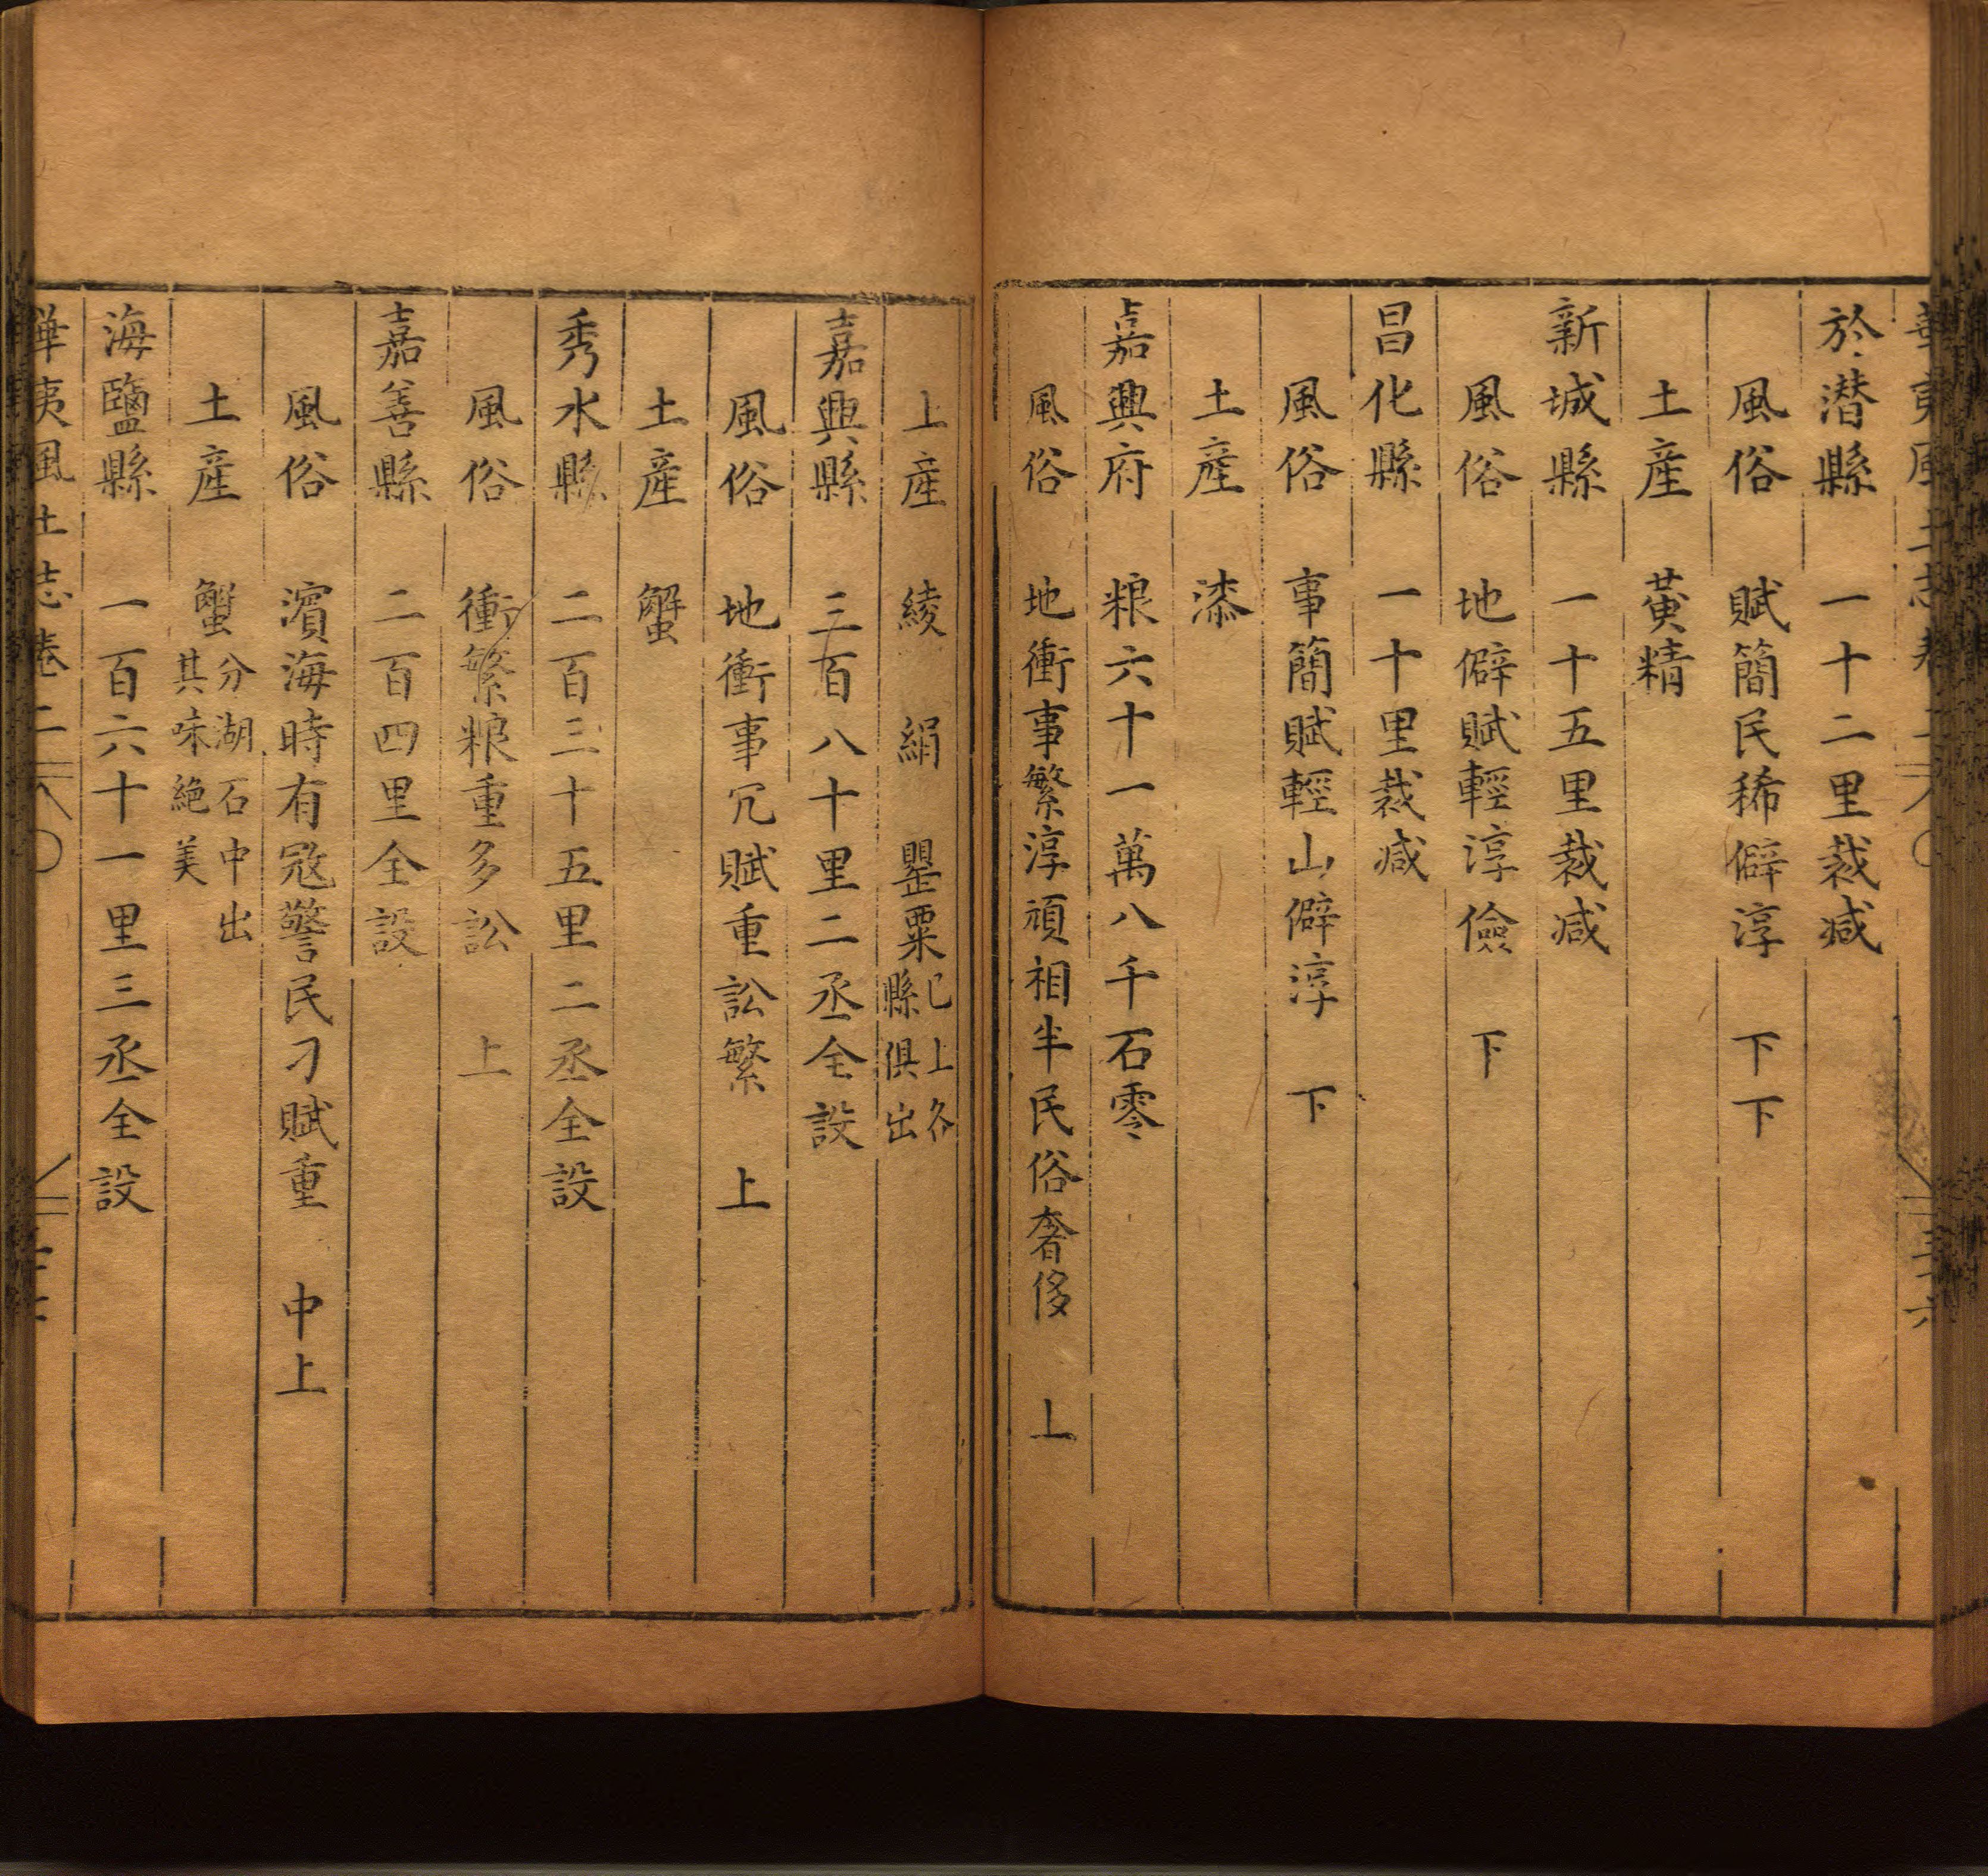 於潜縣 一十二里裁减
風俗 賦簡民稀僻淳 下下
土產 黄精
新城縣 一十五里裁减
風俗 地僻賦輕淳儉 下
昌化縣 一十里裁减
風俗 事簡賦輕山僻淳 下
土產 漆
嘉興府 粮六十一萬八千石零
風俗 地衝事繁淳頑相半民俗奢侈 上
土產 綾 絹 罌粟 已上各縣俱出
嘉興縣 三百八十里二丞全設
風俗 地衝事冗賦重訟繁 上
土產 蟹
秀水縣 二百三十五里二丞全設
風俗 衝繁粮重多訟 上
嘉善縣 二百四里全設
風俗 濵海時有冦警民刁賦重 中上
土產 蟹 分湖石中出其味絶美
海鹽縣 一百六十一里三丞全設
華夷風土志卷二